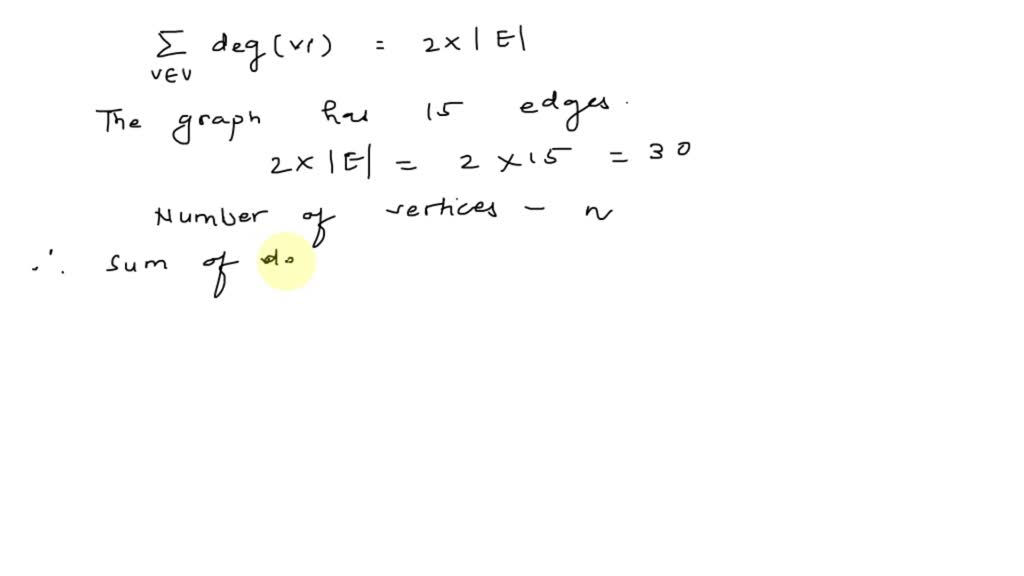 Σ deg(vi) = 2 x |E|
v∈V
The graph has 15 edges.
2 x |E| = 2 x 15 = 30
Number of vertices - n
∴ sum of